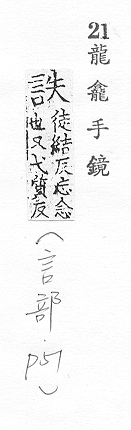 21龍龕手鏡
訣徒結反忘念
也又弋質反
(言部.p51)